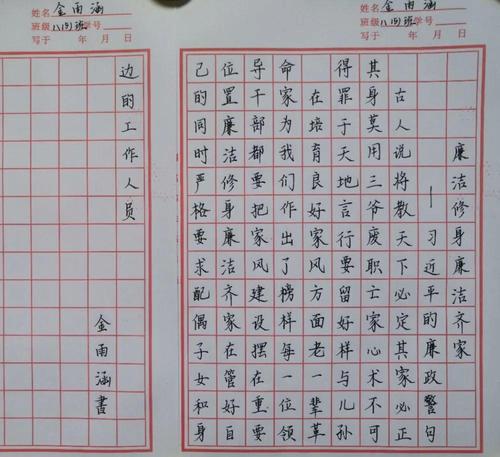 姓名 金雨涵
班级 八(四)班 学号
写于 年 月 日
廉洁修身廉洁齐家
——习近平的廉政警句
古人说将教天下必定其家必正
其身莫用三爷废职亡家心术不可
得罪于天地言行要留好样与儿孙
在培育良好家风方面老一辈革
命家为我们作出了榜样每一位领
导干部都要把家风建设摆在重要
位置廉洁修身廉洁齐家在管好自
己的同时严格要求配偶子女和身
姓名 金雨涵
班级 八(四)班 学号
写于 年 月 日
边的工作人员
金雨涵書